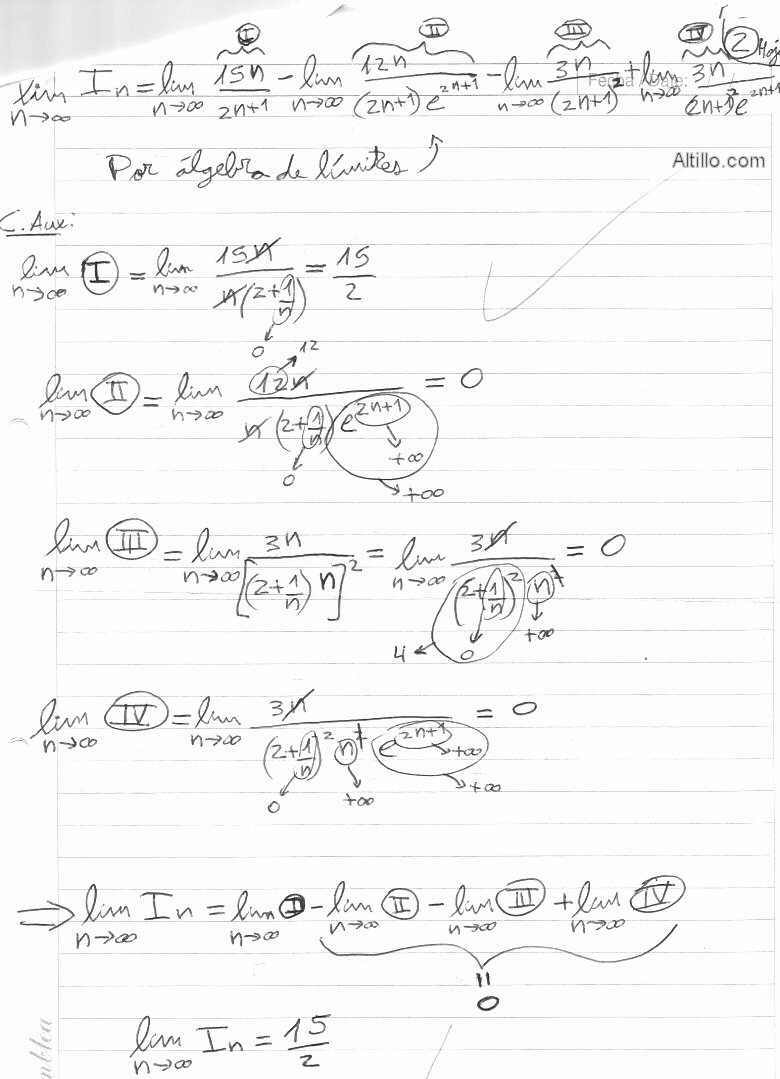 I II III IV 2 Hoja
lim n→∞ In = lim n→∞ 15n/(2n+1) - lim n→∞ 12n/((2n+1)e^(2n+1)) - lim n→∞ 3n/(2n+1)² + lim n→∞ 3n/((2n+1)² e^(2n+1))
Por álgebra de límites
Altillo.com
C. Aux:
lim n→∞ I = lim n→∞ 15n/(n(2+1/n)) = 15/2
0
12
lim n→∞ II = lim n→∞ 12n/(n(2+1/n)e^(2n+1)) = 0
+∞
0
+∞
lim n→∞ III = lim n→∞ 3n/[(2+1/n)n]² = lim n→∞ 3n/((2+1/n)² n²) = 0
+∞
4 0
lim n→∞ IV = lim n→∞ 3n/((2+1/n)² n² e^(2n+1)) = 0
+∞
0 +∞ +∞
⇒ lim n→∞ In = lim n→∞ I - lim n→∞ II - lim n→∞ III + lim n→∞ IV
=
0
lim n→∞ In = 15/2